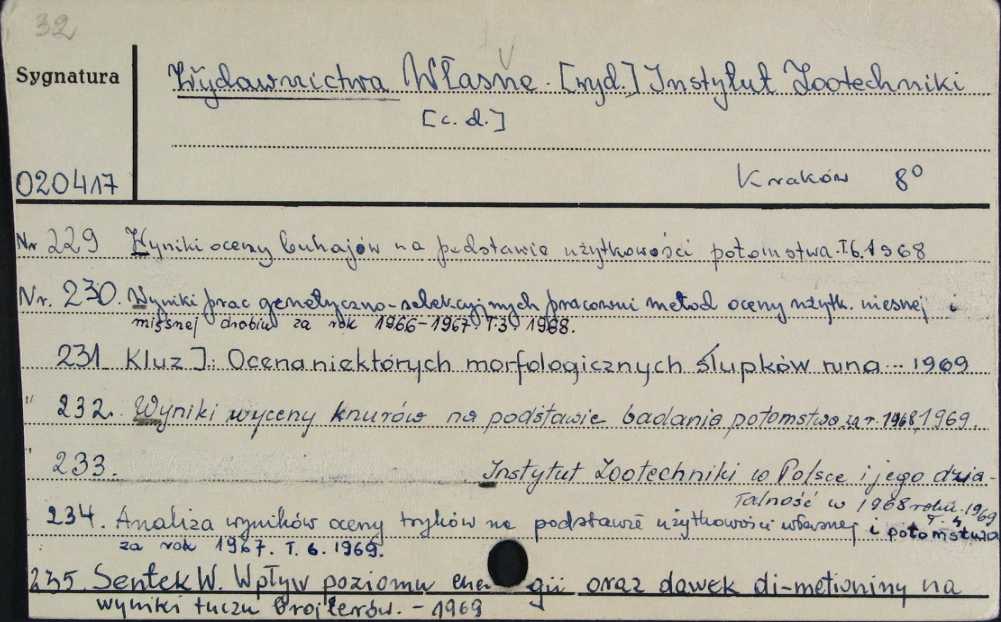 32
Sygnatura
Wydawnictwa Własne. [wyd.] Instytut Zootechniki
[c. d.]
020417
Kraków 8°
Nr 229 Wyniki oceny buhajów na podstawie użytkowości potomstwa. T.6. 1968
Nr. 230. Wyniki prac genetyczno-selekcyjnych pracowni metod oceny użytk. nieśnej i
mięsnej drobiu za rok 1966-1967 T.3 1968.
231 Kluz J.: Ocena niektórych morfologicznych słupków runa... 1969
" 232. Wyniki wyceny knurów na podstawie badania potomstwa za r. 1968, 1969.
" 233. Instytut Zootechniki w Polsce i jego dzia-
łalność w 1968 roku. 1969
234. Analiza wyników oceny tryków na podstawie użytkowości własnej i potomstwa T. 4,
za rok 1967. T. 6. 1969.
235. Sentek W. Wpływ poziomu energii oraz dawek di-metioniny na
wyniki tuczu brojlerów. - 1969